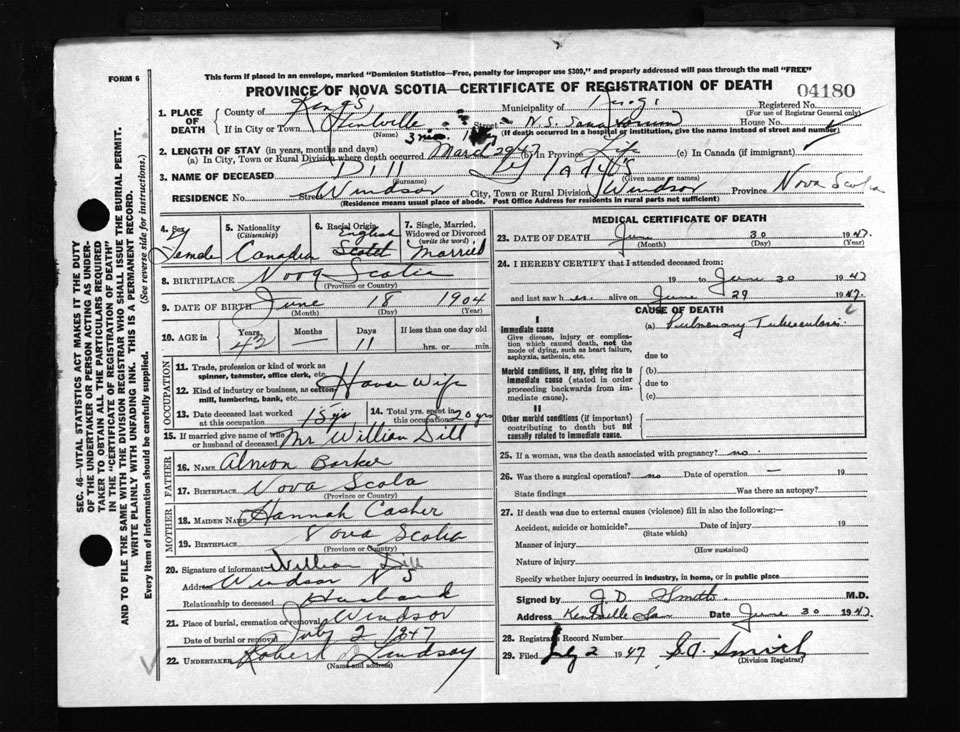 FORM 6
This form if placed in an envelope, marked "Dominion Statistics—Free, penalty for improper use $300," and properly addressed will pass through the mail "FREE"
PROVINCE OF NOVA SCOTIA—CERTIFICATE OF REGISTRATION OF DEATH
04180
1. PLACE OF DEATH
County of Kings Municipality of Kings Registered No.
(For use of Registrar General only)
If in City or Town Kentville Street N.S. Sanatorium House No.
(Name) (If death occurred in a hospital or institution, give the name instead of street and number)
2. LENGTH OF STAY (in years, months and days) 3 mos
(a) In City, Town or Rural Division where death occurred March 29 47 (b) In Province Life (c) In Canada (if immigrant)
3. NAME OF DECEASED Dill
(Surname) (Given name or names)
RESIDENCE No. Street Windsor City, Town or Rural Division Windsor Province Nova Scotia
(Residence means usual place of abode. Post Office Address for residents in rural parts not sufficient)
4. Sex 5. Nationality (Citizenship) 6. Racial Origin English 7. Single, Married, Widowed or Divorced (write the word)
Female Canadia Scotch Married
8. BIRTHPLACE Nova Scotia
(Province or Country)
9. DATE OF BIRTH June 18 1904
(Month) (Day) (Year)
10. AGE in Years Months Days If less than one day old
43 — 11 hrs. or min.
OCCUPATION
11. Trade, profession or kind of work as spinner, teamster, office clerk, etc.
12. Kind of industry or business, as cotton mill, lumbering, bank, etc. House Wife
13. Date deceased last worked at this occupation 14. Total yrs. spent in this occupation 20 yrs
15. If married give name of wife or husband of deceased Mr William Dill
FATHER
16. NAME Almon Barker
17. BIRTHPLACE Nova Scota
(Province or Country)
MOTHER
18. MAIDEN NAME Hannah Casher
19. BIRTHPLACE Nova Scotia
(Province or Country)
20. Signature of informant William Dill
Address Windsor N S
Relationship to deceased Husband
21. Place of burial, cremation or removal Windsor
Date of burial or removal July 2 1947
22. UNDERTAKER Robert Lindsay
(Name and address)
MEDICAL CERTIFICATE OF DEATH
23. DATE OF DEATH June 30 1947
(Month) (Day) (Year)
24. I HEREBY CERTIFY that I attended deceased from:
19 to June 30 1947
and last saw her alive on June 29 1947
CAUSE OF DEATH
I
Immediate cause (a) Pulmonary Tuberculosis
Give disease, injury or complication which caused death, not the mode of dying, such as heart failure, asphyxia, asthenia, etc.
due to
Morbid conditions, if any, giving rise to immediate cause (stated in order proceeding backwards from immediate cause). (b)
due to
(c)
II
Other morbid conditions (if important) contributing to death but not causally related to immediate cause.
25. If a woman, was the death associated with pregnancy? no.
26. Was there a surgical operation? no Date of operation — 19
State findings Was there an autopsy?
27. If death was due to external causes (violence) fill in also the following:—
Accident, suicide or homicide? Date of injury 19
(State which)
Manner of injury
(How sustained)
Nature of injury
Specify whether injury occurred in industry, in home, or in public place
Signed by J.D. Smith M.D.
Address Kentville San Date June 30 1947
28. Registrars Record Number
29. Filed July 2 1947 Smith
(Division Registrar)
SEC. 46—VITAL STATISTICS ACT MAKES IT THE DUTY
OF THE UNDERTAKER OR PERSON ACTING AS UNDER-
TAKER TO OBTAIN ALL THE PARTICULARS REQUIRED
IN THE "CERTIFICATE OF REGISTRATION OF DEATH"
AND TO FILE THE SAME WITH THE DIVISION REGISTRAR WHO SHALL ISSUE THE BURIAL PERMIT.
WRITE PLAINLY WITH UNFADING INK. THIS IS A PERMANENT RECORD.
Every item of information should be carefully supplied. (See reverse side for instructions.)